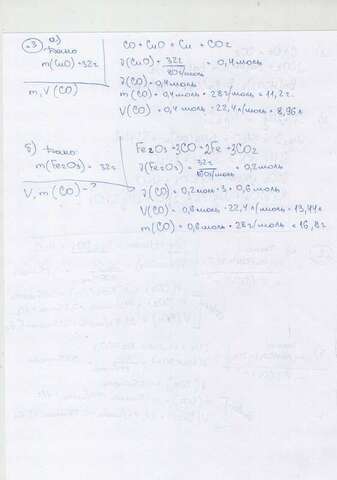 №3 а)
Дано
m(CuO) = 32г
m, V (CO)
CO + CuO = Cu + CO2
ν(CuO) = 32г / 80г/моль = 0,4 моль
ν(CO) = 0,4 моль
m(CO) = 0,4 моль * 28г/моль = 11,2г.
V(CO) = 0,4 моль * 22,4 л/моль = 8,96 л
б) Дано
m(Fe2O3) = 32г
V, m (CO) = ?
Fe2O3 + 3CO = 2Fe + 3CO2
ν(Fe2O3) = 32г / 160г/моль = 0,2 моль
ν(CO) = 0,2 моль * 3 = 0,6 моль
V(CO) = 0,6 моль * 22,4 л/моль = 13,44 л
m(CO) = 0,6 моль * 28г/моль = 16,8г